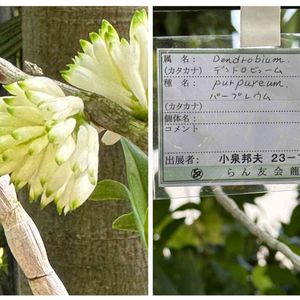 属 名: Dendrobium.
(カタカナ) デンドロビューム
種 名: purpureum.
パープレウム
(カタカナ)
個体名:
コメント
出展者: 小泉邦夫 23-
らん友会